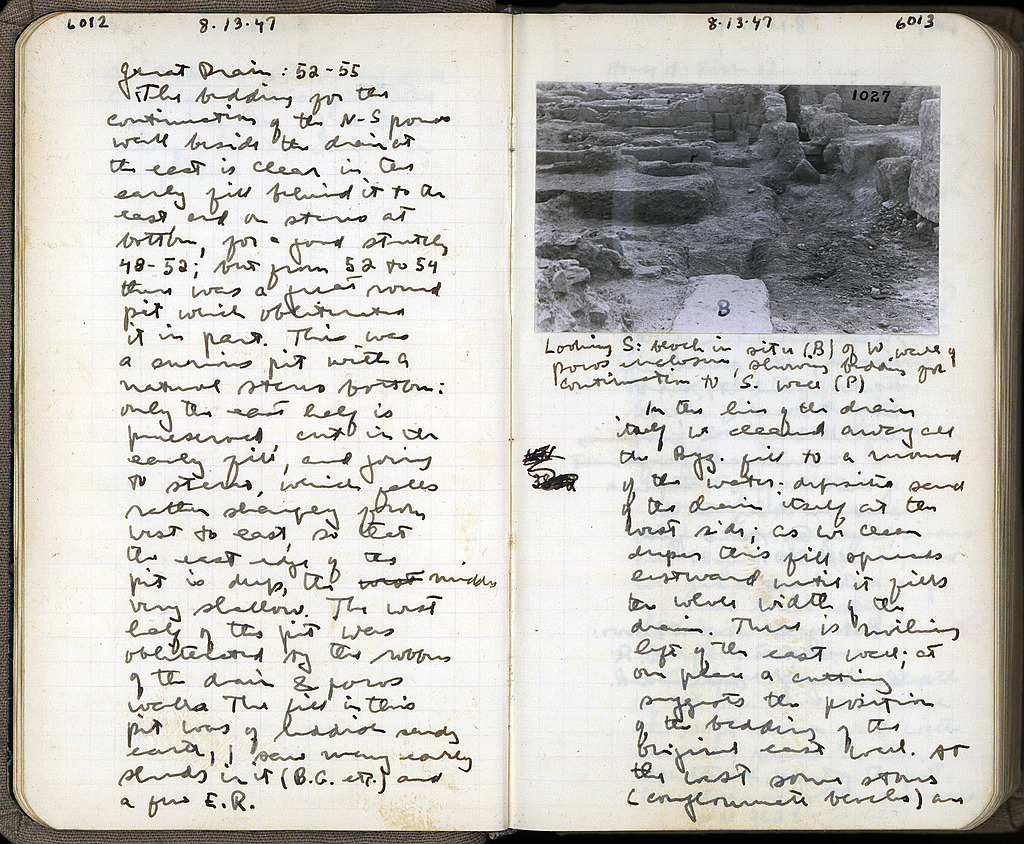 6012
8.13.47
Great Drain: 52-55
The bedding for the
continuation of the N-S poros
wall beside the drain at
the east is clear in the
early fill behind it to the
east and on stereo at
bottom, for a good stretch
48-52; but from 52 to 54
there was a great round
pit which obliterated
it in part. This was
a curious pit with a
natural stereo bottom:
only the east half is
preserved, cut in the
early fill, and going
to stereo, which falls
rather sharply from
west to east, so that
the east edge of the
pit is deep, the west middle
very shallow. The west
half of the pit was
obliterated by the robbers
of the drain & poros
walls. The fill in this
pit was of reddish sandy
earth; I saw many early
sherds in it (B.G. etc.) and
a few E.R.
8.13.47
6013
1027
B
Looking S: block in situ (B) of W. wall of
poros enclosure, showing bedding for
continuation to S. wall (P)
In the line of the drain
itself we cleaned away all
the Byz. fill to a mound
of the water-deposited sand
of the drain itself at the
west side; as we clean
deeper this fill spreads
eastward until it fills
the whole width of the
drain. There is nothing
left of the east wall; at
one place a cutting
suggests the position
of the bedding of the
original east wall. At
the west some stones
(conglomerate blocks) are